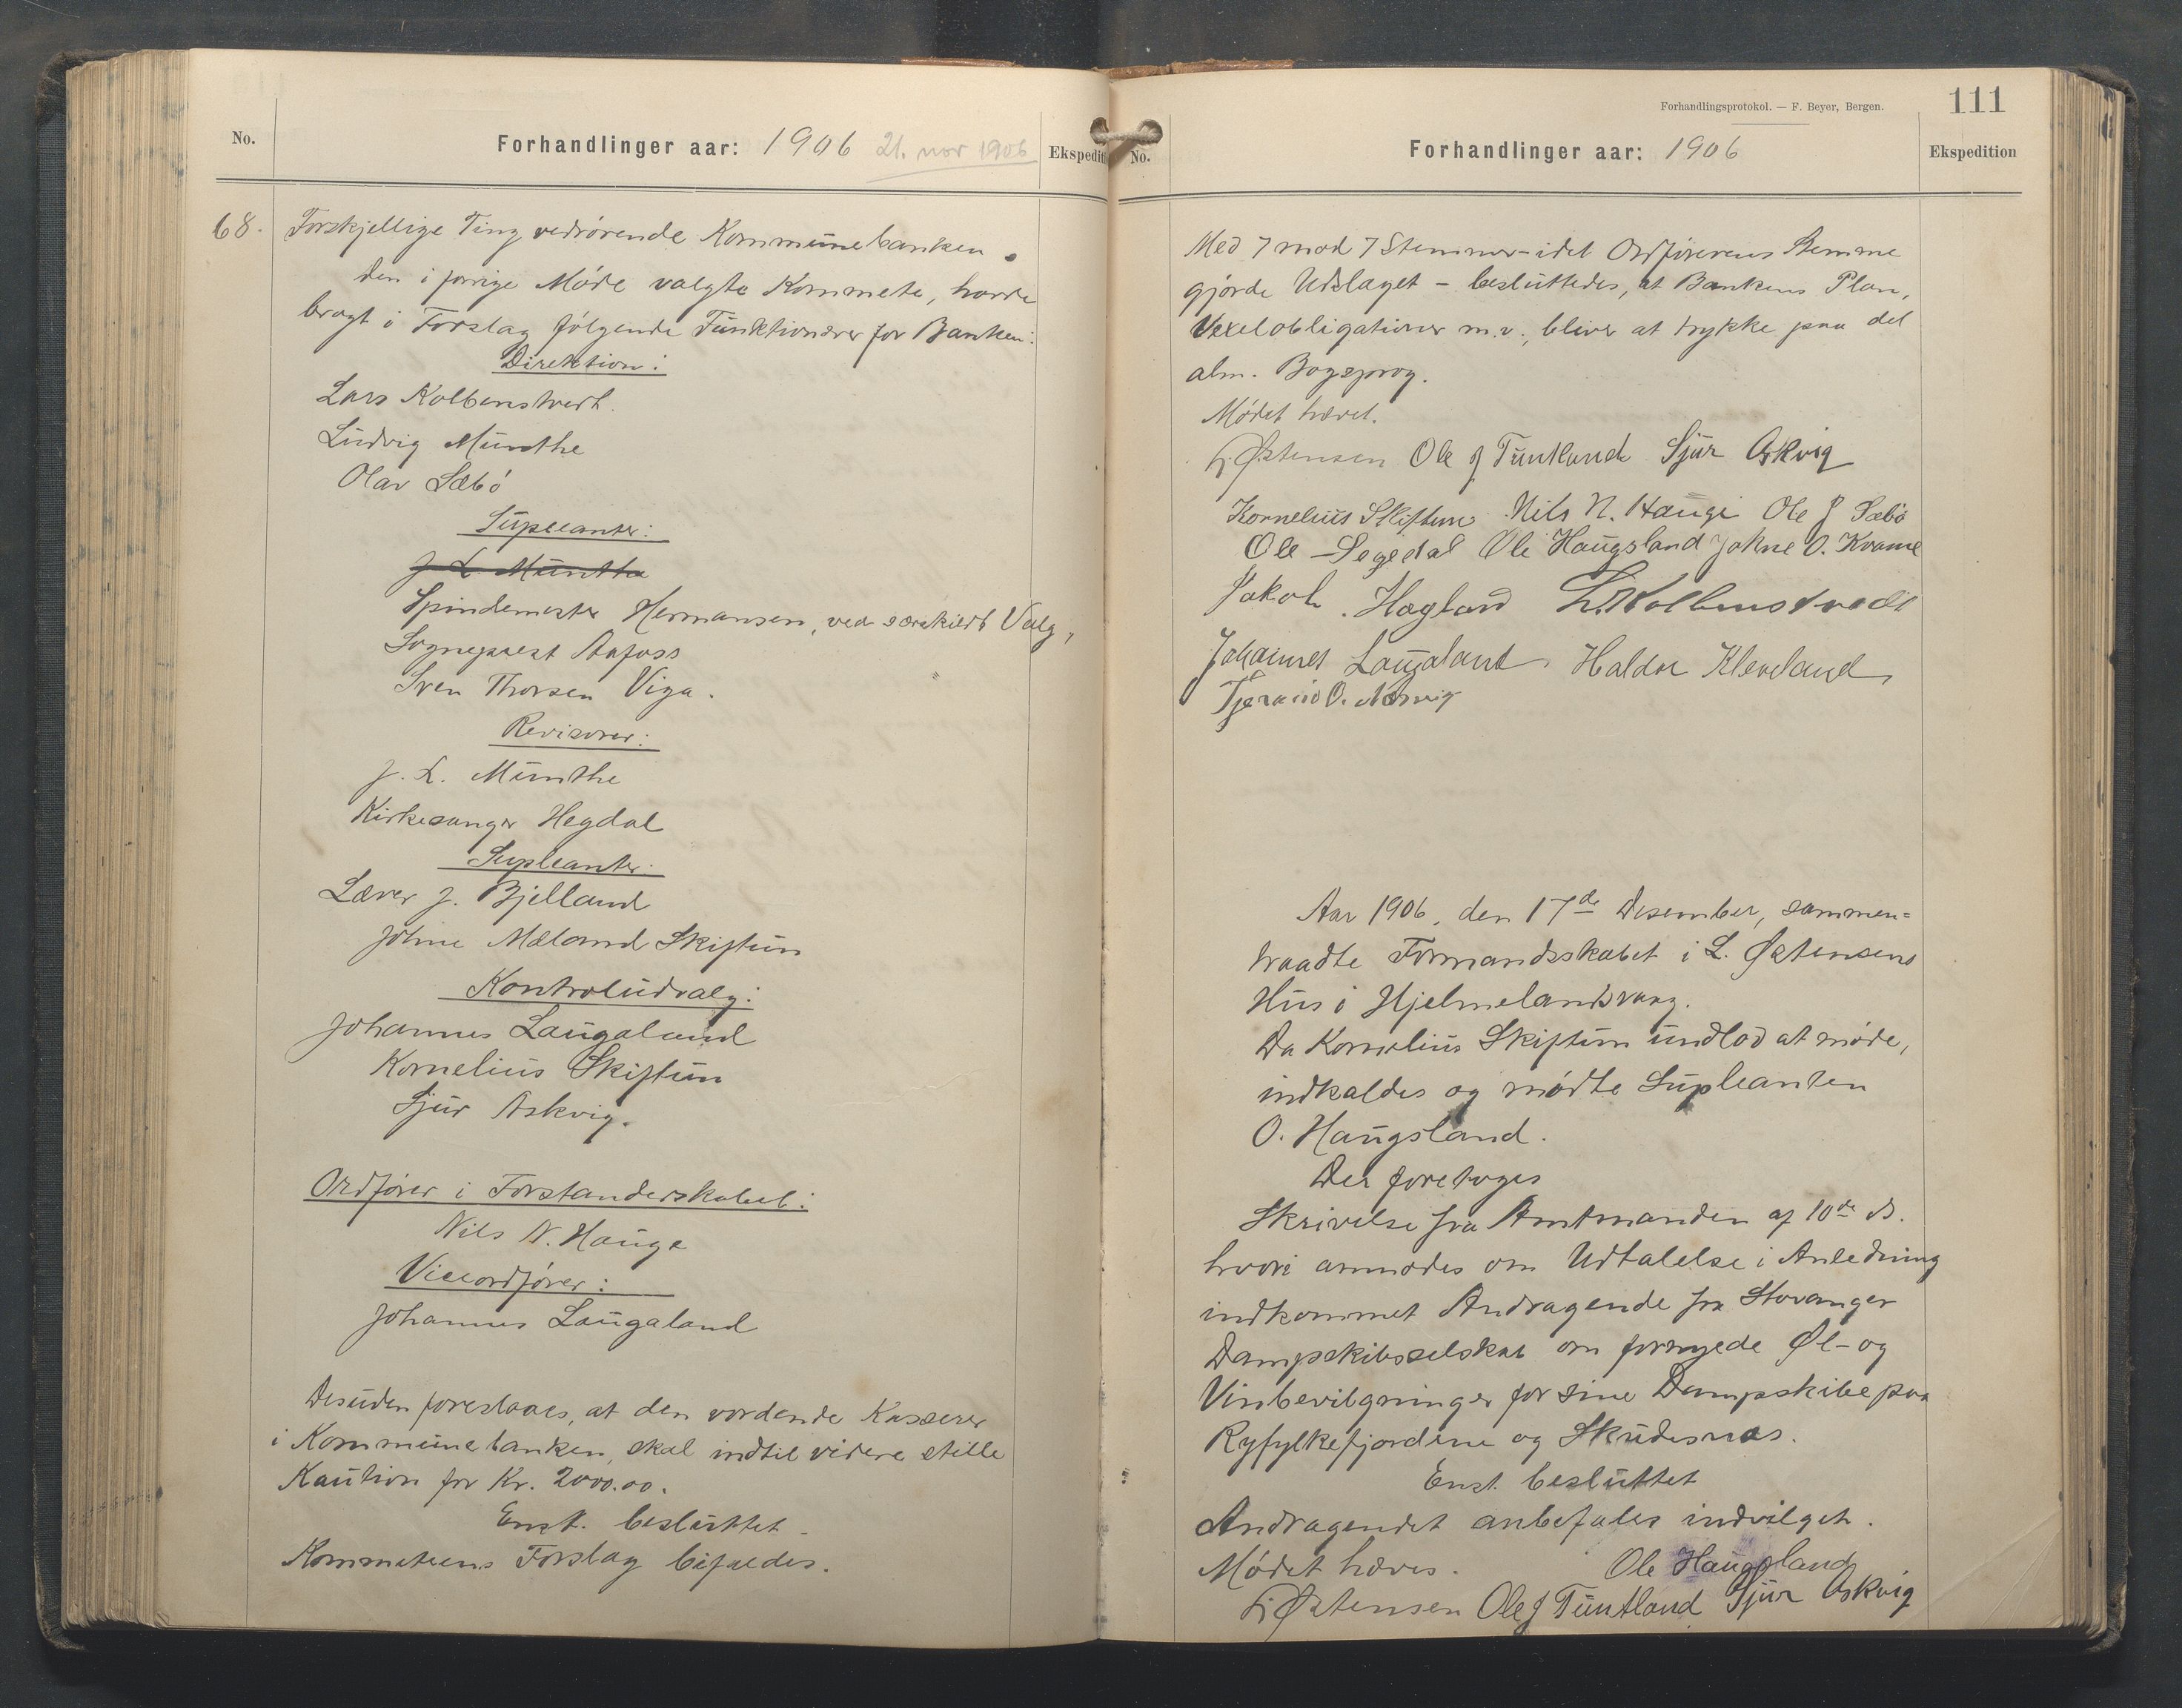 No.
Forhandlinger aar: 1906 21. nov 1906
Ekspedit
68. Forskjellige Ting vedrørende Kommunebanken.
Den i forrige Møde valgte Kommete, havde
bragt i Forslag følgende Funktionærer for Banken:
Direktion:
Lars Kolbenstvedt.
Ludvig Munthe
Olav Sæbø
Supleanter:
J. L. Munthe
Spindemester Hermansen, ved særskildt Valg,
Sogneprest Aafoss
Sven Thorsen Viga.
Revisorer:
J. L. Munthe
Kirkesanger Hegdal
Supleanter:
Lærer J. Bjelland
Johne Mæland Skiftun
Kontroludvalg:
Johannes Laugaland
Kornelius Skiftun
Sjur Askvig.
Ordfører i Forstanderskabet:
Nils N. Hauge
Viceordfører:
Johannes Laugaland
Desuden foreslaaes, at den vordende Kasserer
i Kommunebanken, skal indtil videre stille
Kaution for Kr. 2000.00.
Enst. besluttet
Kommeteens Forslag bifaldes.
Forhandlingsprotokol. — F. Beyer, Bergen.
111
No.
Forhandlinger aar: 1906
Ekspedition
Med 7 mod 7 Stemmer - idet Ordførerens Stemme
gjorde Udslaget - besluttedes, at Bankens Plan,
Vexelobligationer m.v., bliver at trykke paa det
alm. Bogsprog.
Mødet hævet.
L. Østensen Ole J Tuntland Sjur Askvig
Kornelius Skiftun Nils N. Hauge Ole J Sæbø
Ole Segedal Ole Haugsland Johne O. Kvame
Jakob Hagland L. Kolbenstvedt
Johannes Laugaland. Haldor Kleveland,
Tjerand O. Nørvig
Aar 1906, den 17de Desember, sammen=
traadte Formandsskabet i L. Østensens
Hus i Hjelmelandsvaag.
Da Kornelius Skiftun undlod at møde,
indkaldes og mødte Supleanten
O. Haugsland.
Der foretoges
Skrivelse fra Amtmanden af 10de ds.
hvori anmodes om Udtalelse i Anledning
indkommet Andragende fra Stavanger
Dampskibsselskab om fornyede Øl- og
Vinbevilgninger for sine Dampskibe paa
Ryfylkefjordene og Skudesnæs.
Enst. besluttet
Andragendet anbefales indvilget.
Mødet hæves. Ole Haugsland
L. Østensen Ole J Tuntland Sjur Askvig